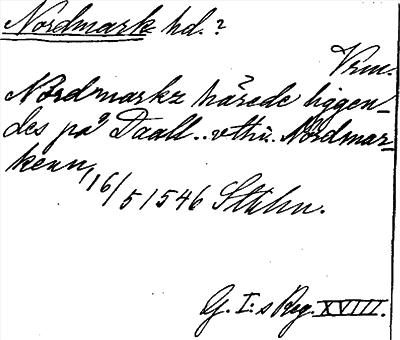 Nordmark hd.?
Vrm.
Nordmarkz härede liggen-
des på Daall.. vthi. Nordmar-
kenn,
16/5 1546 Sthlm.
G. I:s Reg. XVIII.